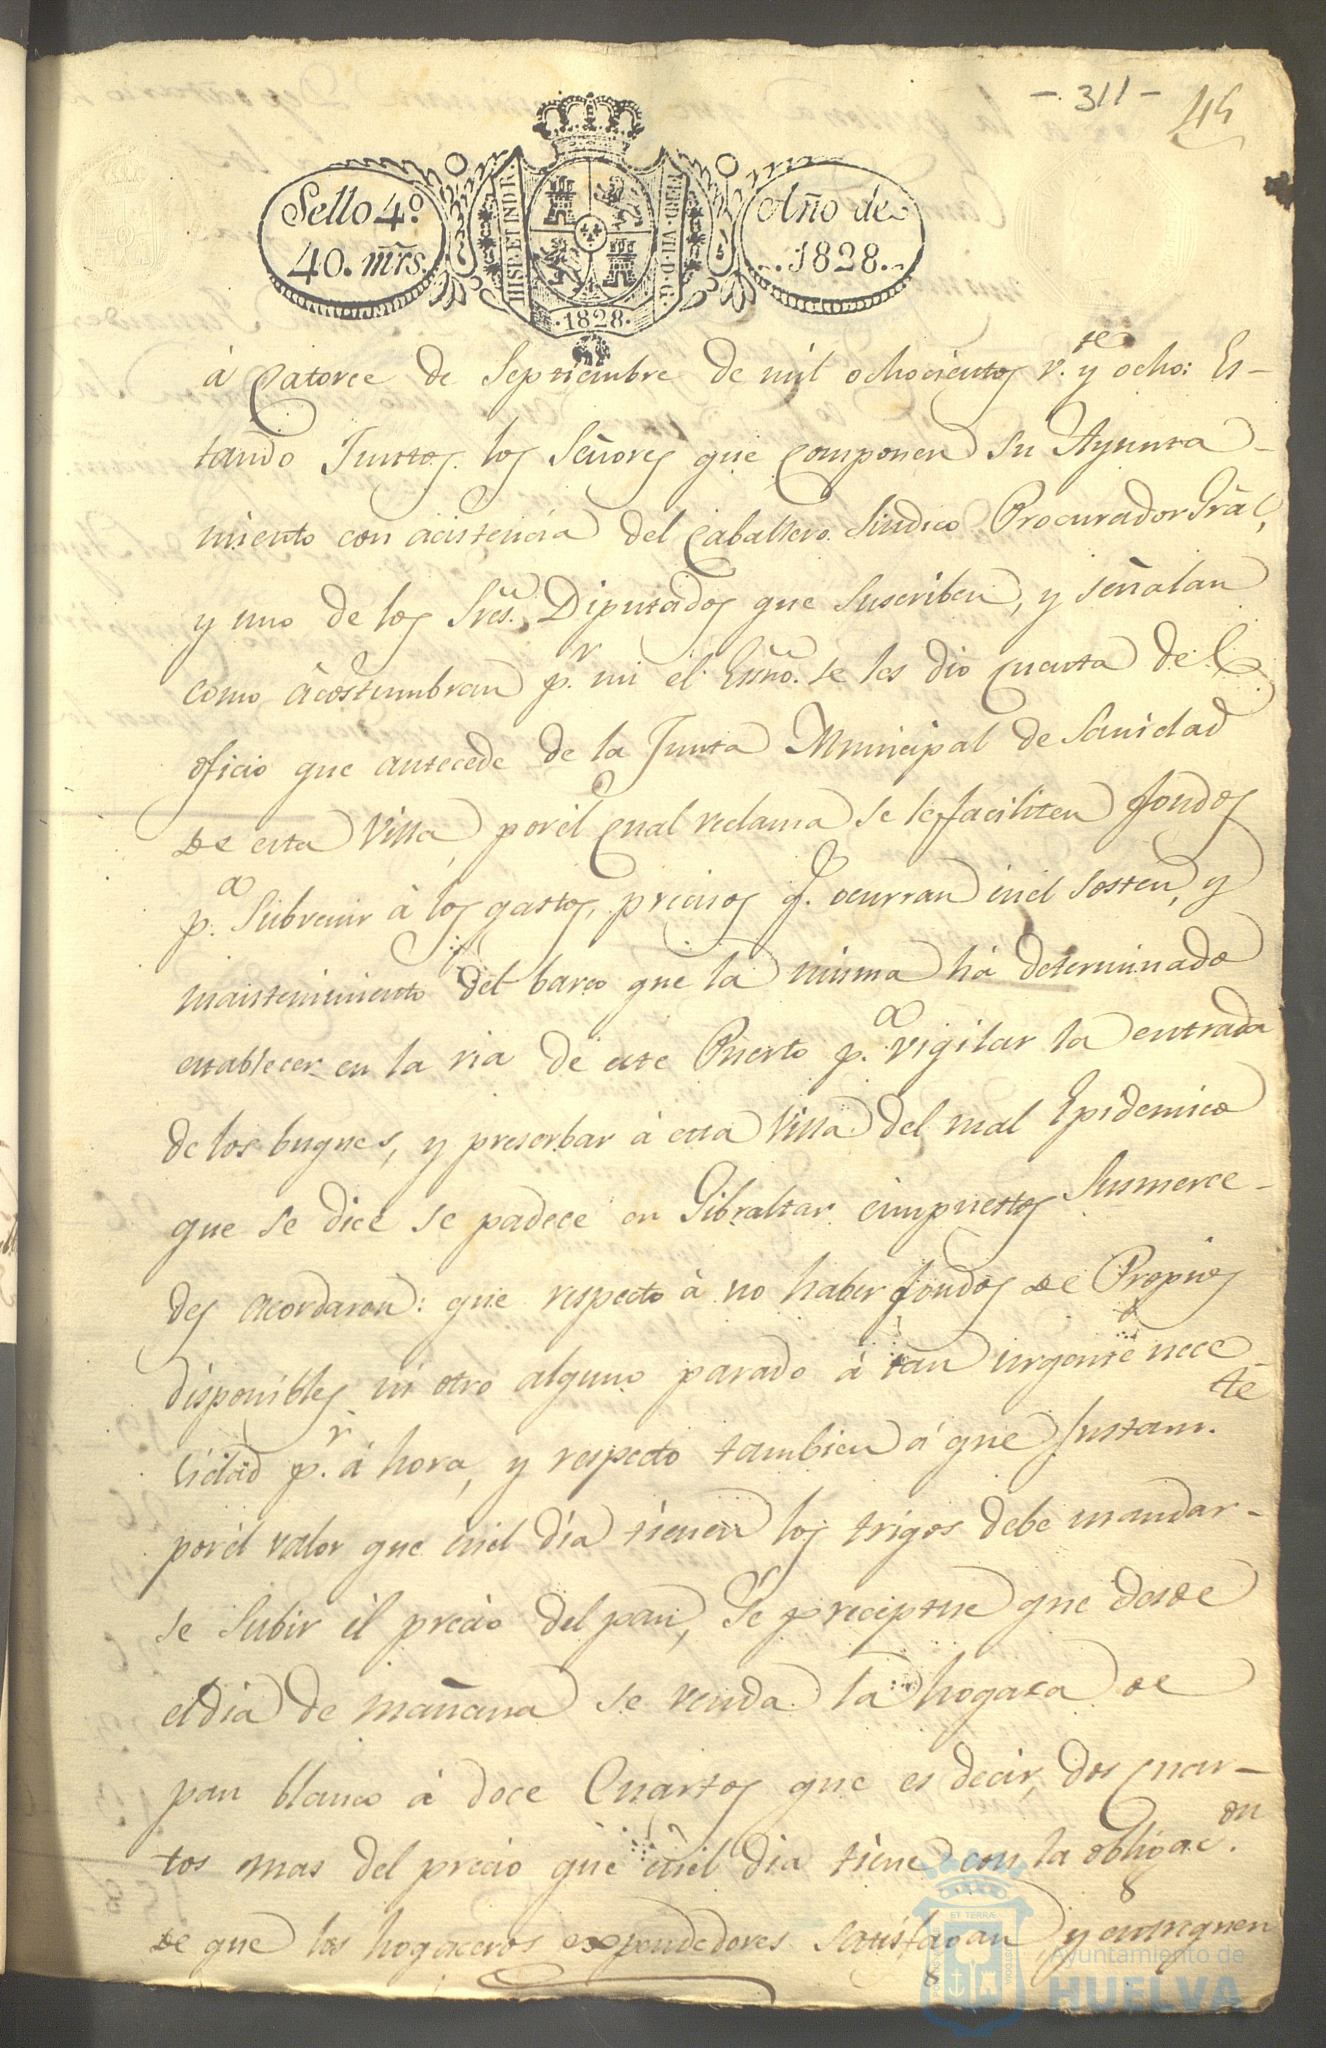 - 311 -
45
Sello 4º
40. mrs.
HISP. ET IND R.
FERD. VII. D. G.
Año de
1828.
·1828·
à Catorce de Septiembre de mil ochocientos v.te y ocho: Es-
tando Juntos los Señores que componen su Ayunta-
miento con acistencia del Caballero Sindico Procurador Gral,
y uno de los Sres. Diputados que suscriben, y señalan
como àcostumbran p.r mi el Esño. se les dio cuenta del
oficio que antecede de la Junta Municipal de Sanidad
de esta Villa, por el qual reclama se le faciliten fondos
p.a Subvenir à los gastos precisos q. ocurran en el sosten, y
mantenimiento del barco que la misma há determinado
establecer en la ria de este Puerto p.a vigilar la entrada
de los buques, y preserbar à esta Villa del mal Epidemico
que se dice se padece en Gibraltar: èimpuestos Susmerce-
des acordaron: que respecto à no haber fondos de Propios
disponibles ni otro alguno parado à tan urgente nece-
cidad p.r à hora, y respecto tambien á que Justam.te
por el valor que en el dia tienen los trigos debe mandar-
se subir el precio del pan, Se preceptue que desde
el dia de mañana se venda la hogaza de
pan blanco à doce Cuartos que es decir, dos cuar-
tos mas del precio que en el dia tiene con la obligac.on
de que los hogaceros expendedores satisfagan, y entreguen
Ayuntamiento de
HUELVA